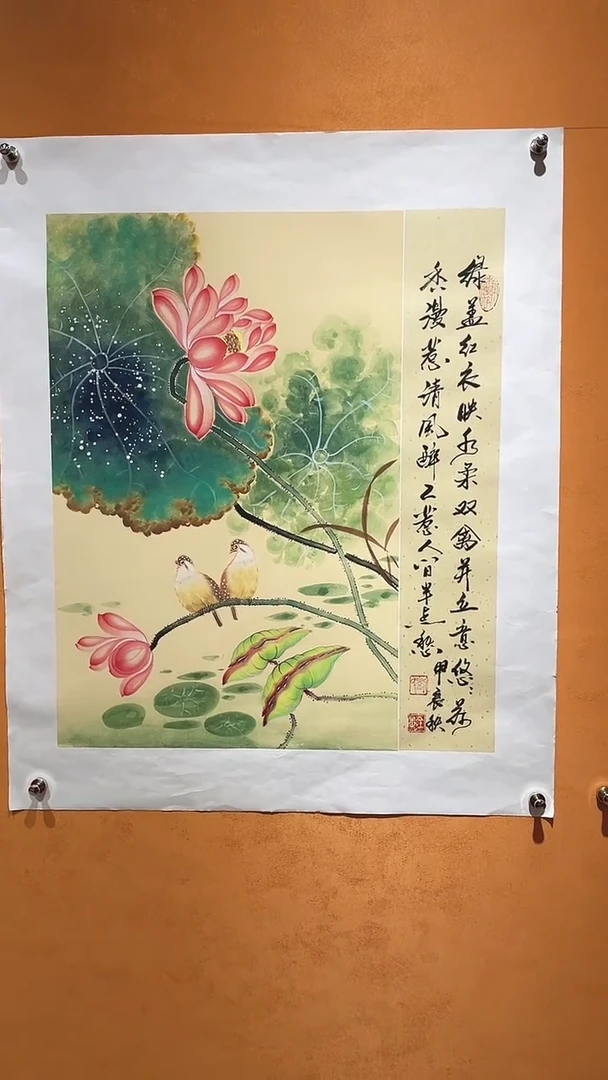 绿盖红衣映水柔双禽并立意悠悠荷
香漫惹清风醉不惹人间半点愁
甲辰秋